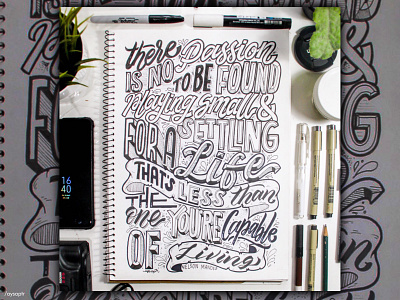 there is Passion
IS NO TO BE FOUND
playing Small &
FOR A SETTLING
Life
THAT'S LESS than
THE one YOU'RE Capable
OF Living
NELSON MANDELA
16
40
/aysaptr